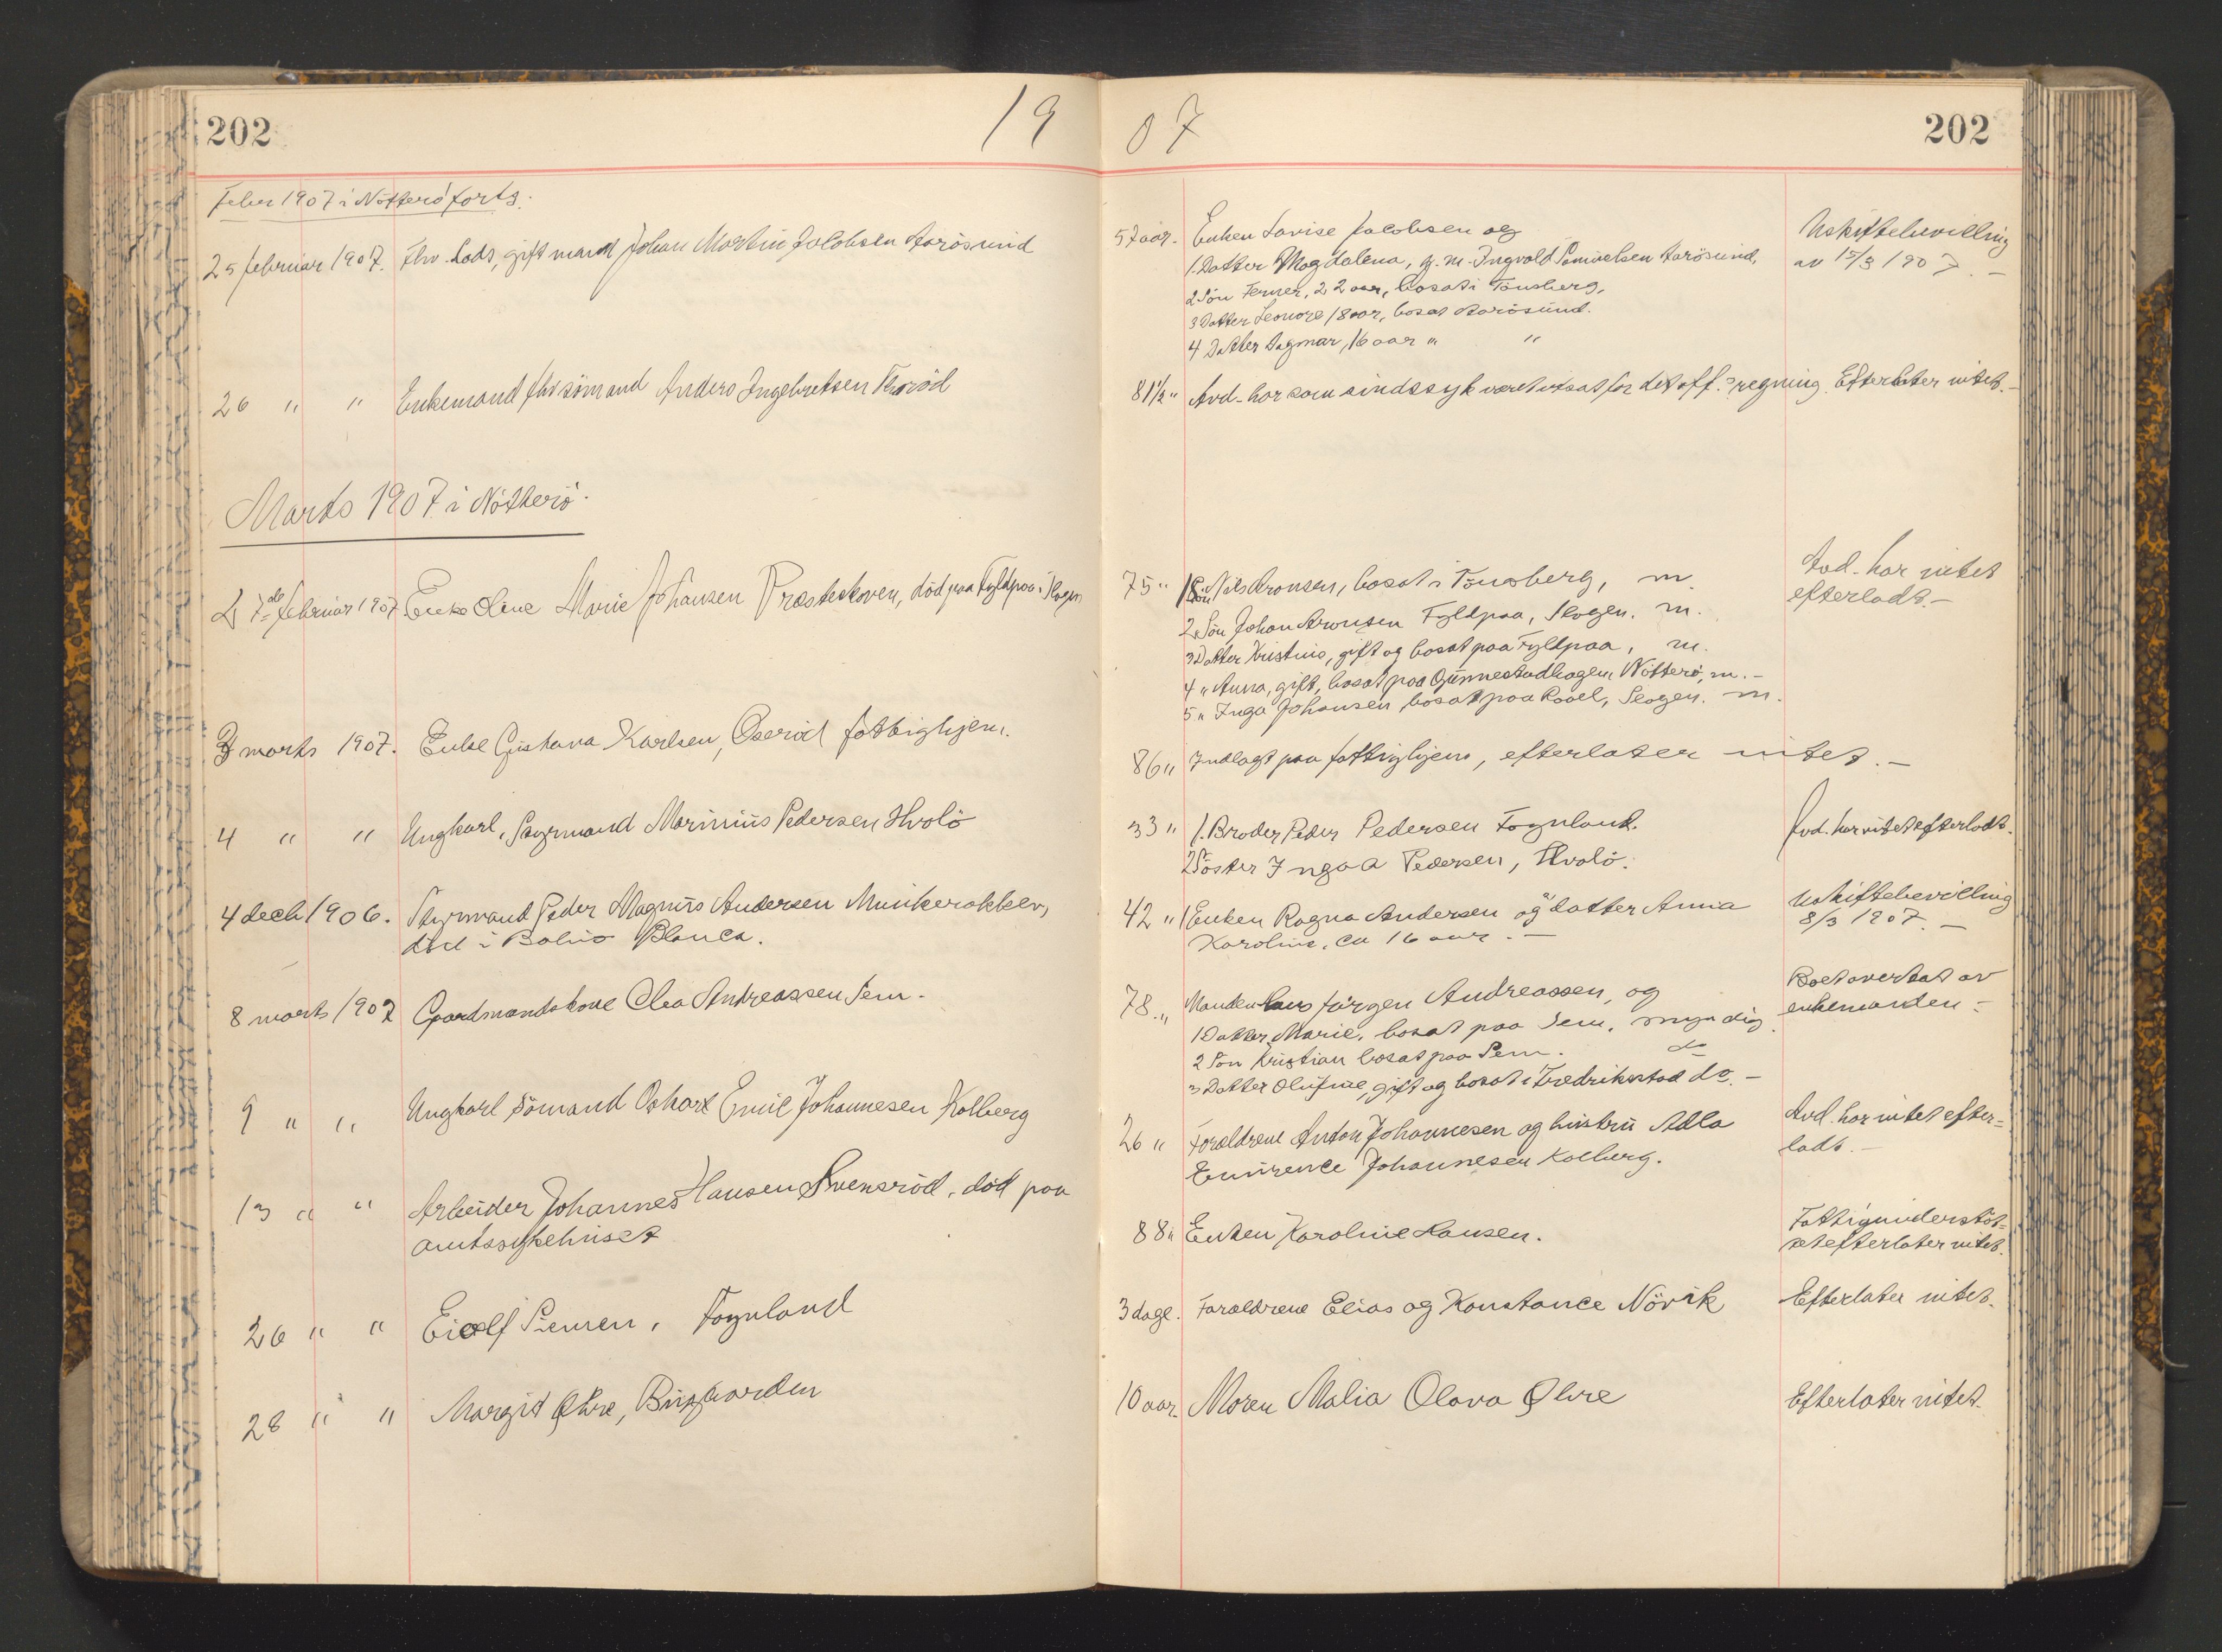 202
19
07
202
Febr 1907 i Nötterö forts.
25 februar 1907. Fhv. Lods, gift mand Johan Martin Jacobsen Aarösund
57 aar. Enken Lovise Jacobsen og
1. Datter Magdalena, g. m. Ingvald Samuelsen Aarösund,
2 Sön Ferner, 22 aar, bosat i Tönsberg,
3 Datter Leonore 18 aar, bosat Aarösund.
4 Datter Dagmar, 16 aar " "
Uskiftebevilling
av 15/3 1907. –
26 " " Enkemand fhv sömand Anders Ingebretsen Thoröd
81½ " Avd. har som sindssyk været utsat for det off. regning. Efterlater intet. –
Marts 1907 i Nötterö.
27de februar 1907 Enke Oline Marie Johansen Præsteskoven, död paa Fyldpaa i Skogen
75 " 1 Sön Nils Aronsen, bosat i Tönsberg, m
2 Sön Johan Aronsen Fyldpaa, Skogen. m.
3 Datter Kristine, gift og bosat paa Fyldpaa, m.
4 " Anna, gift, bosat paa Gunnestadhagen Nötterö, m. –
5 " Inga Johansen bosat paa Roael, Skogen. m.
Avd. har intet
efterladt. –
3 marts 1907. Enke Gustava Karlsen, Oseröd fattighjem.
86 " Indlagt paa fattighjem, efterlater intet. –
4 " " Ungkarl, Styrmand Marinius Pedersen Hvolö
33 " 1. Broder Peder Pedersen Foynland.
2 Söster Ingaa Pedersen, Hvolö.
Avd. har intet efterladt.
4 decb 1906. Styrmand Peder Magnus Andersen Munkerekken,
död i Bahia Blanca.
42 " 1 Enken Ragna Andersen og datter Anna
Karoline, ca 16 aar. –
Uskiftebevilling
8/3 1907. –
8 marts 1907 Gaardmandskone Clea Andreassen Sem.
78. " Manden Lars Jörgen Andreassen, og
1 Datter Marie, bosat paa Sem, myndig
2 Sön Kristian bosat paa Sem. do
3 Datter Olufine, gift og bosat i Fredrikstad do. –
Boet overtat av
enkemanden. –
9 " " Ungkarl sömand Oskar Emil Johannesen Kolberg
26 " Forældrene Anton Johannesen og hustru Adla
Emirence Johannesen Kolberg.
Avd. har intet efter=
ladt. –
13 " " Arbeider Johannes Hansen Svensröd, död paa
amtssykehuset
88 " Enken Karoline Hansen.
Fattigunderstöt=
tet efterlater intet.
26 " " Eiolf Siemen, Foynland
3 dage. Forældrene Elias og Konstance Növik
Efterlater intet.
28 " " Margit Øhre, Buggaarden
10 aar. Moren Malia Olava Øhre
Efterlater intet.